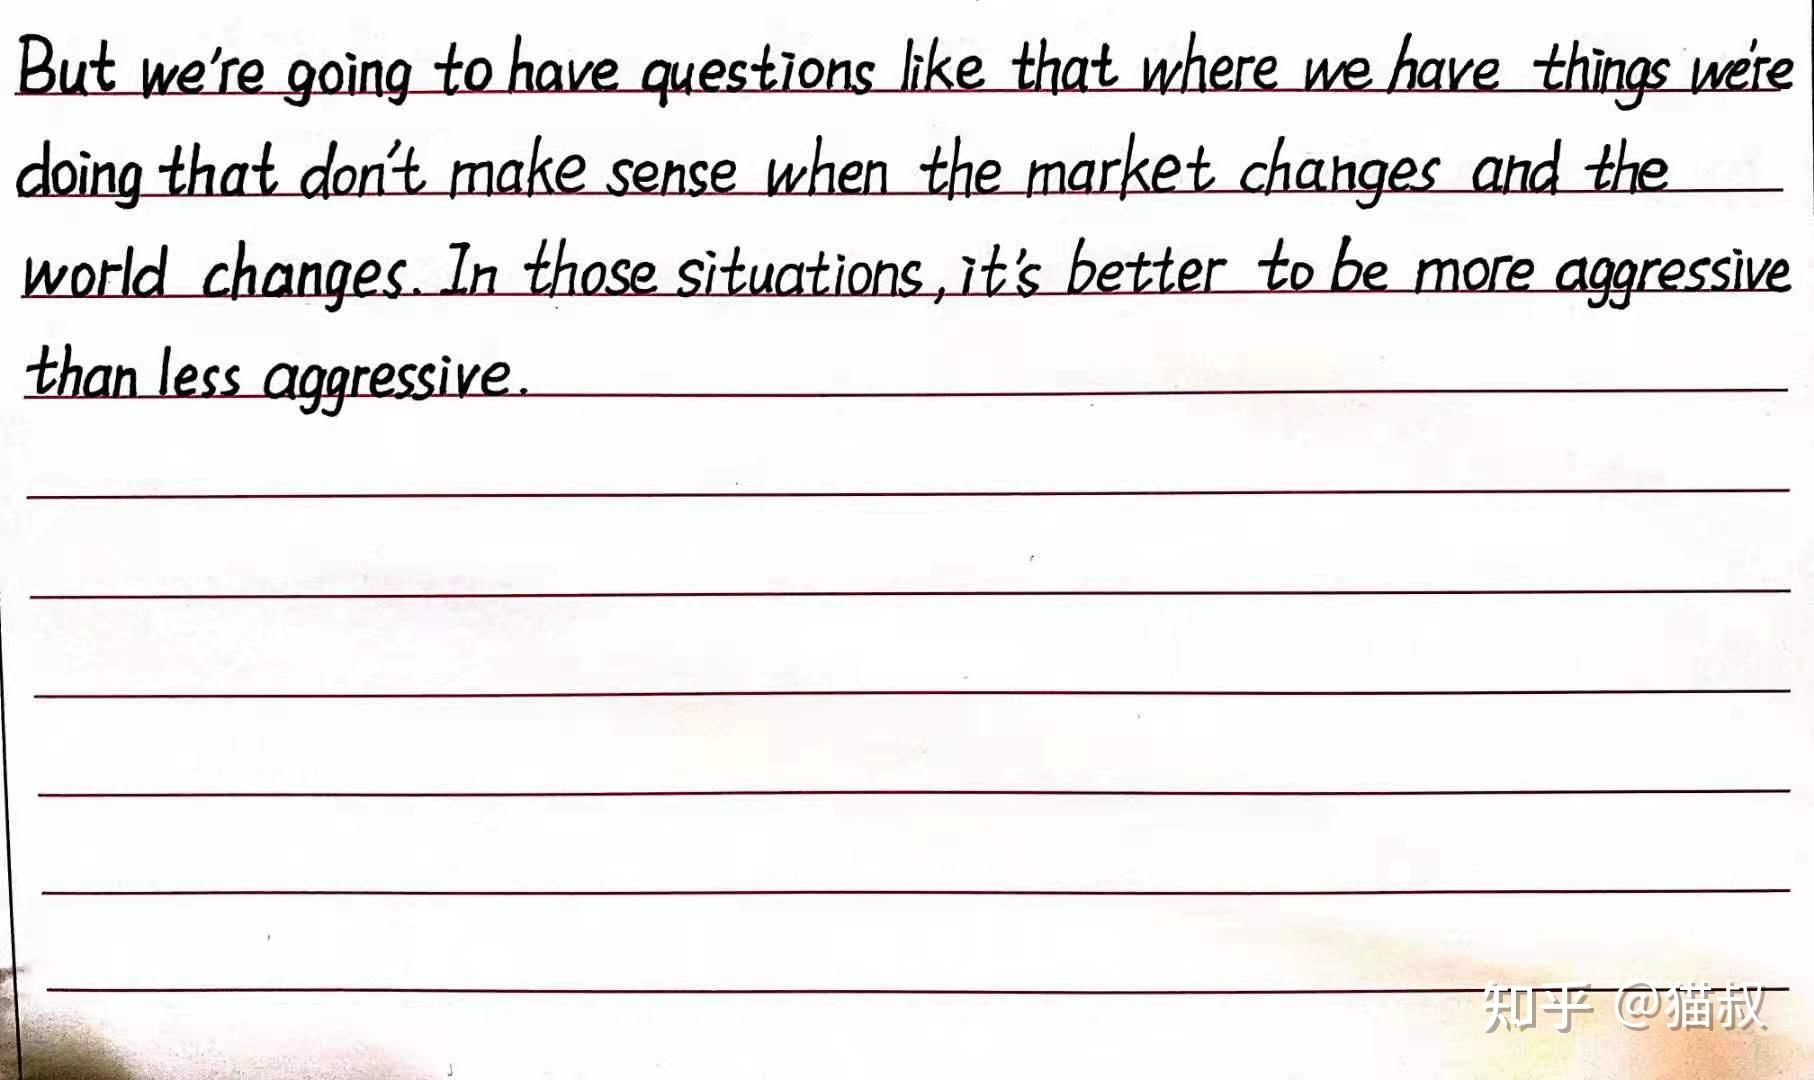 But we're going to have questions like that where we have things we're
doing that don't make sense when the market changes and the
world changes. In those situations, it's better to be more aggressive
than less aggressive.
知乎 @猫叔